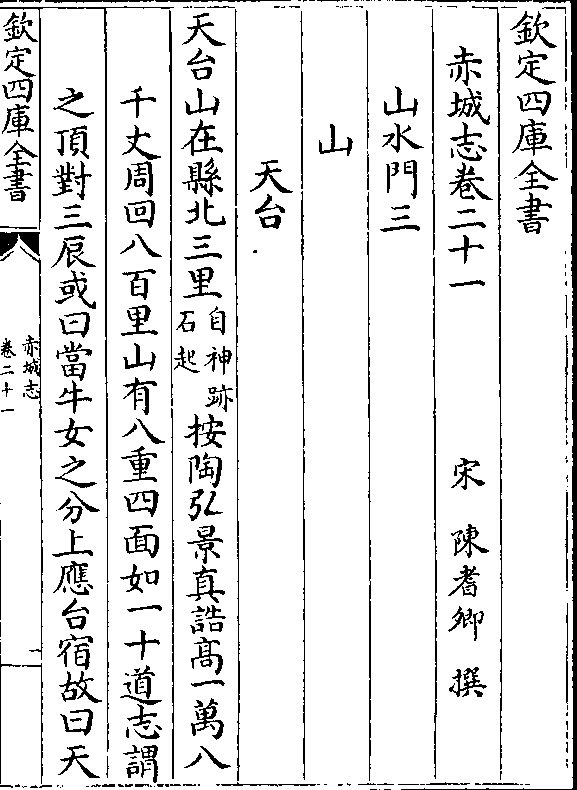 欽定四庫全書
赤城志卷二十一
宋 陳耆卿 撰
山水門三
山
天台
天台山在縣北三里自神跡石起按陶弘景真誥髙一萬八
千丈周回八百里山有八重四面如一十道志謂
之頂對三辰或曰當牛女之分上應台宿故曰天
欽定四庫全書
赤城志
卷二十一
一